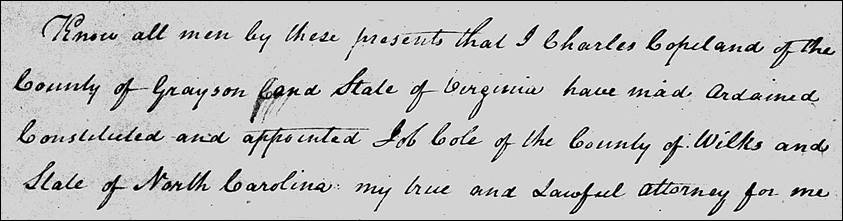 Know all men by these presents that I Charles Copeland of the
County of Grayson and State of Virginia have mad ardained
Constituted and appointed Job Cole of the County of Wilks and
State of North Carolina my true and Lawful attorney for me